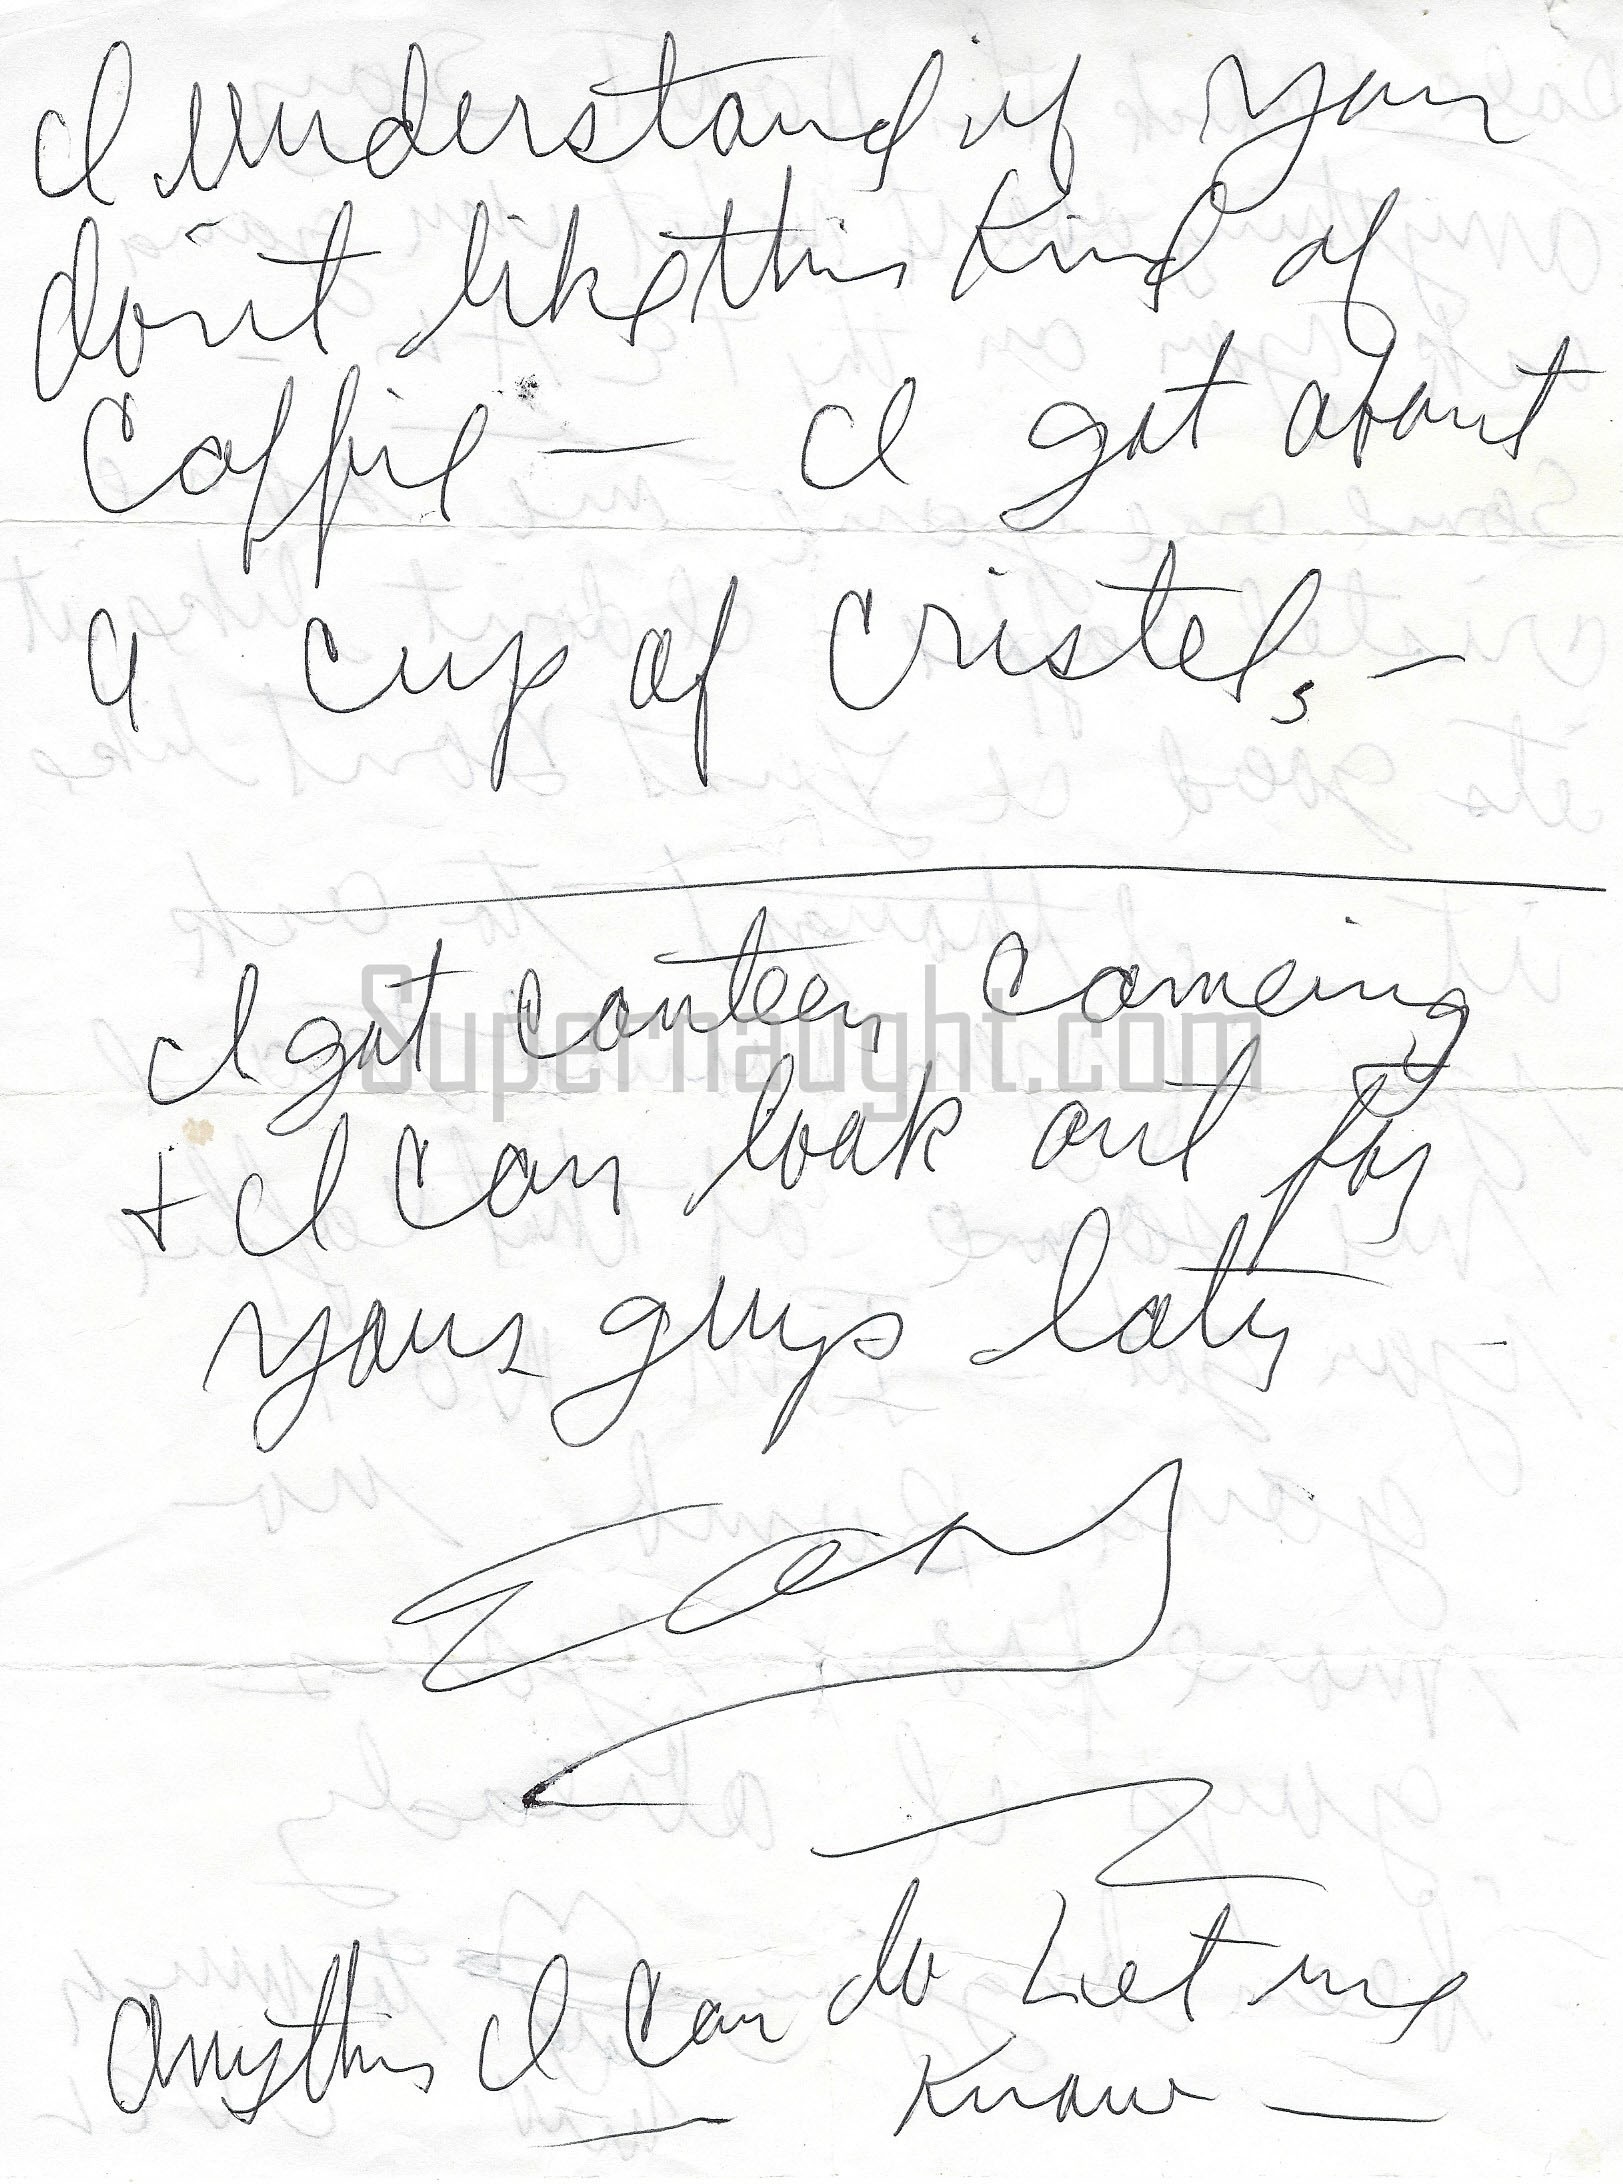 I understand if you
don't like this kind of
coffie — I got about
a cup of cristel, —
I got conteen comeing
Supernaught.com
+ I can look out for
yous guys later -
anything I can do Let me
know —